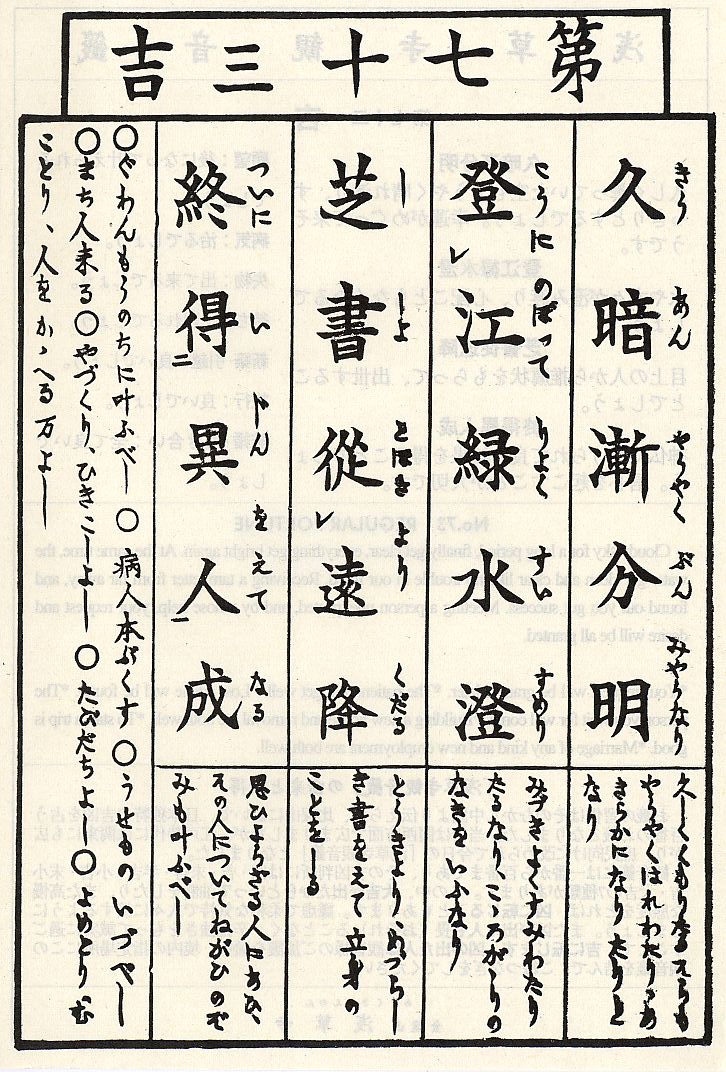 第七十三吉
きう あん やうやく ぶん みやうなり
久暗漸分明
久しくくもりなるそらも
やうやくはれわたりあ
きらかになりたりと
なり
こうに のぼつて りよく すい すめり
登レ江緑水澄
みづきよくすみわたり
たるなりこころがゝりの
なきをいふなり
し しよ とほき より くだる
芝書從レ遠降
とうきよりめづらし
き書をえて立身の
ことをしる
ついに い じん を えて なる
終得二異人一成
思ひよらざる人にあひ、
その人についてねがひのぞ
みも叶ふべし
○ぐわんもうのちに叶ふべし○病人本ぶくす○うせものいづべし
○まち人来る○やづくり、ひきこしよし○たびだちよし○よめとりむ
ことり、人をかゝへる万よし